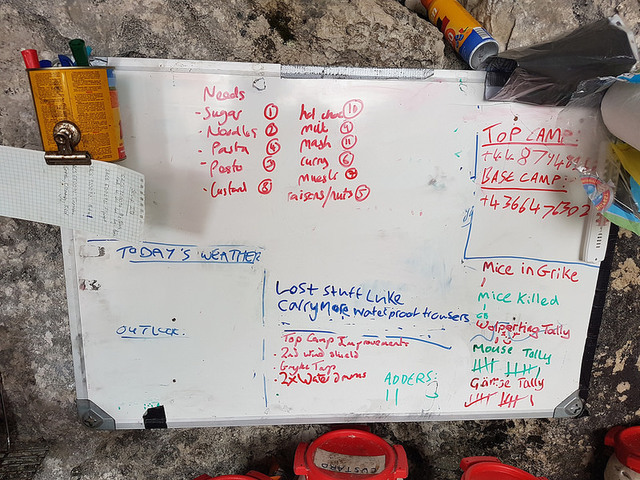 Needs
- Sugar ①
- Noodles ②
- Pasta ④
- Pesto ③
- Custard ⑧
hot choc ⑩
milk ⑨
mash ⑪
curry ⑥
muesli
raisens/nuts ⑤
TOP CAMP:
BASE CAMP:
+4366476302
TODAY'S WEATHER
OUTLOOK:
Lost Stuff Luke
Carry More waterproof trousers
Top Camp Improvements
- 2nd wind shield
- Gryke Tarp
- 2x Water drums
ADDERS:
Mice in Grike
Mice Killed
Wolperting Tally
Mouse Tally
Gämse Tally
CUSTARD